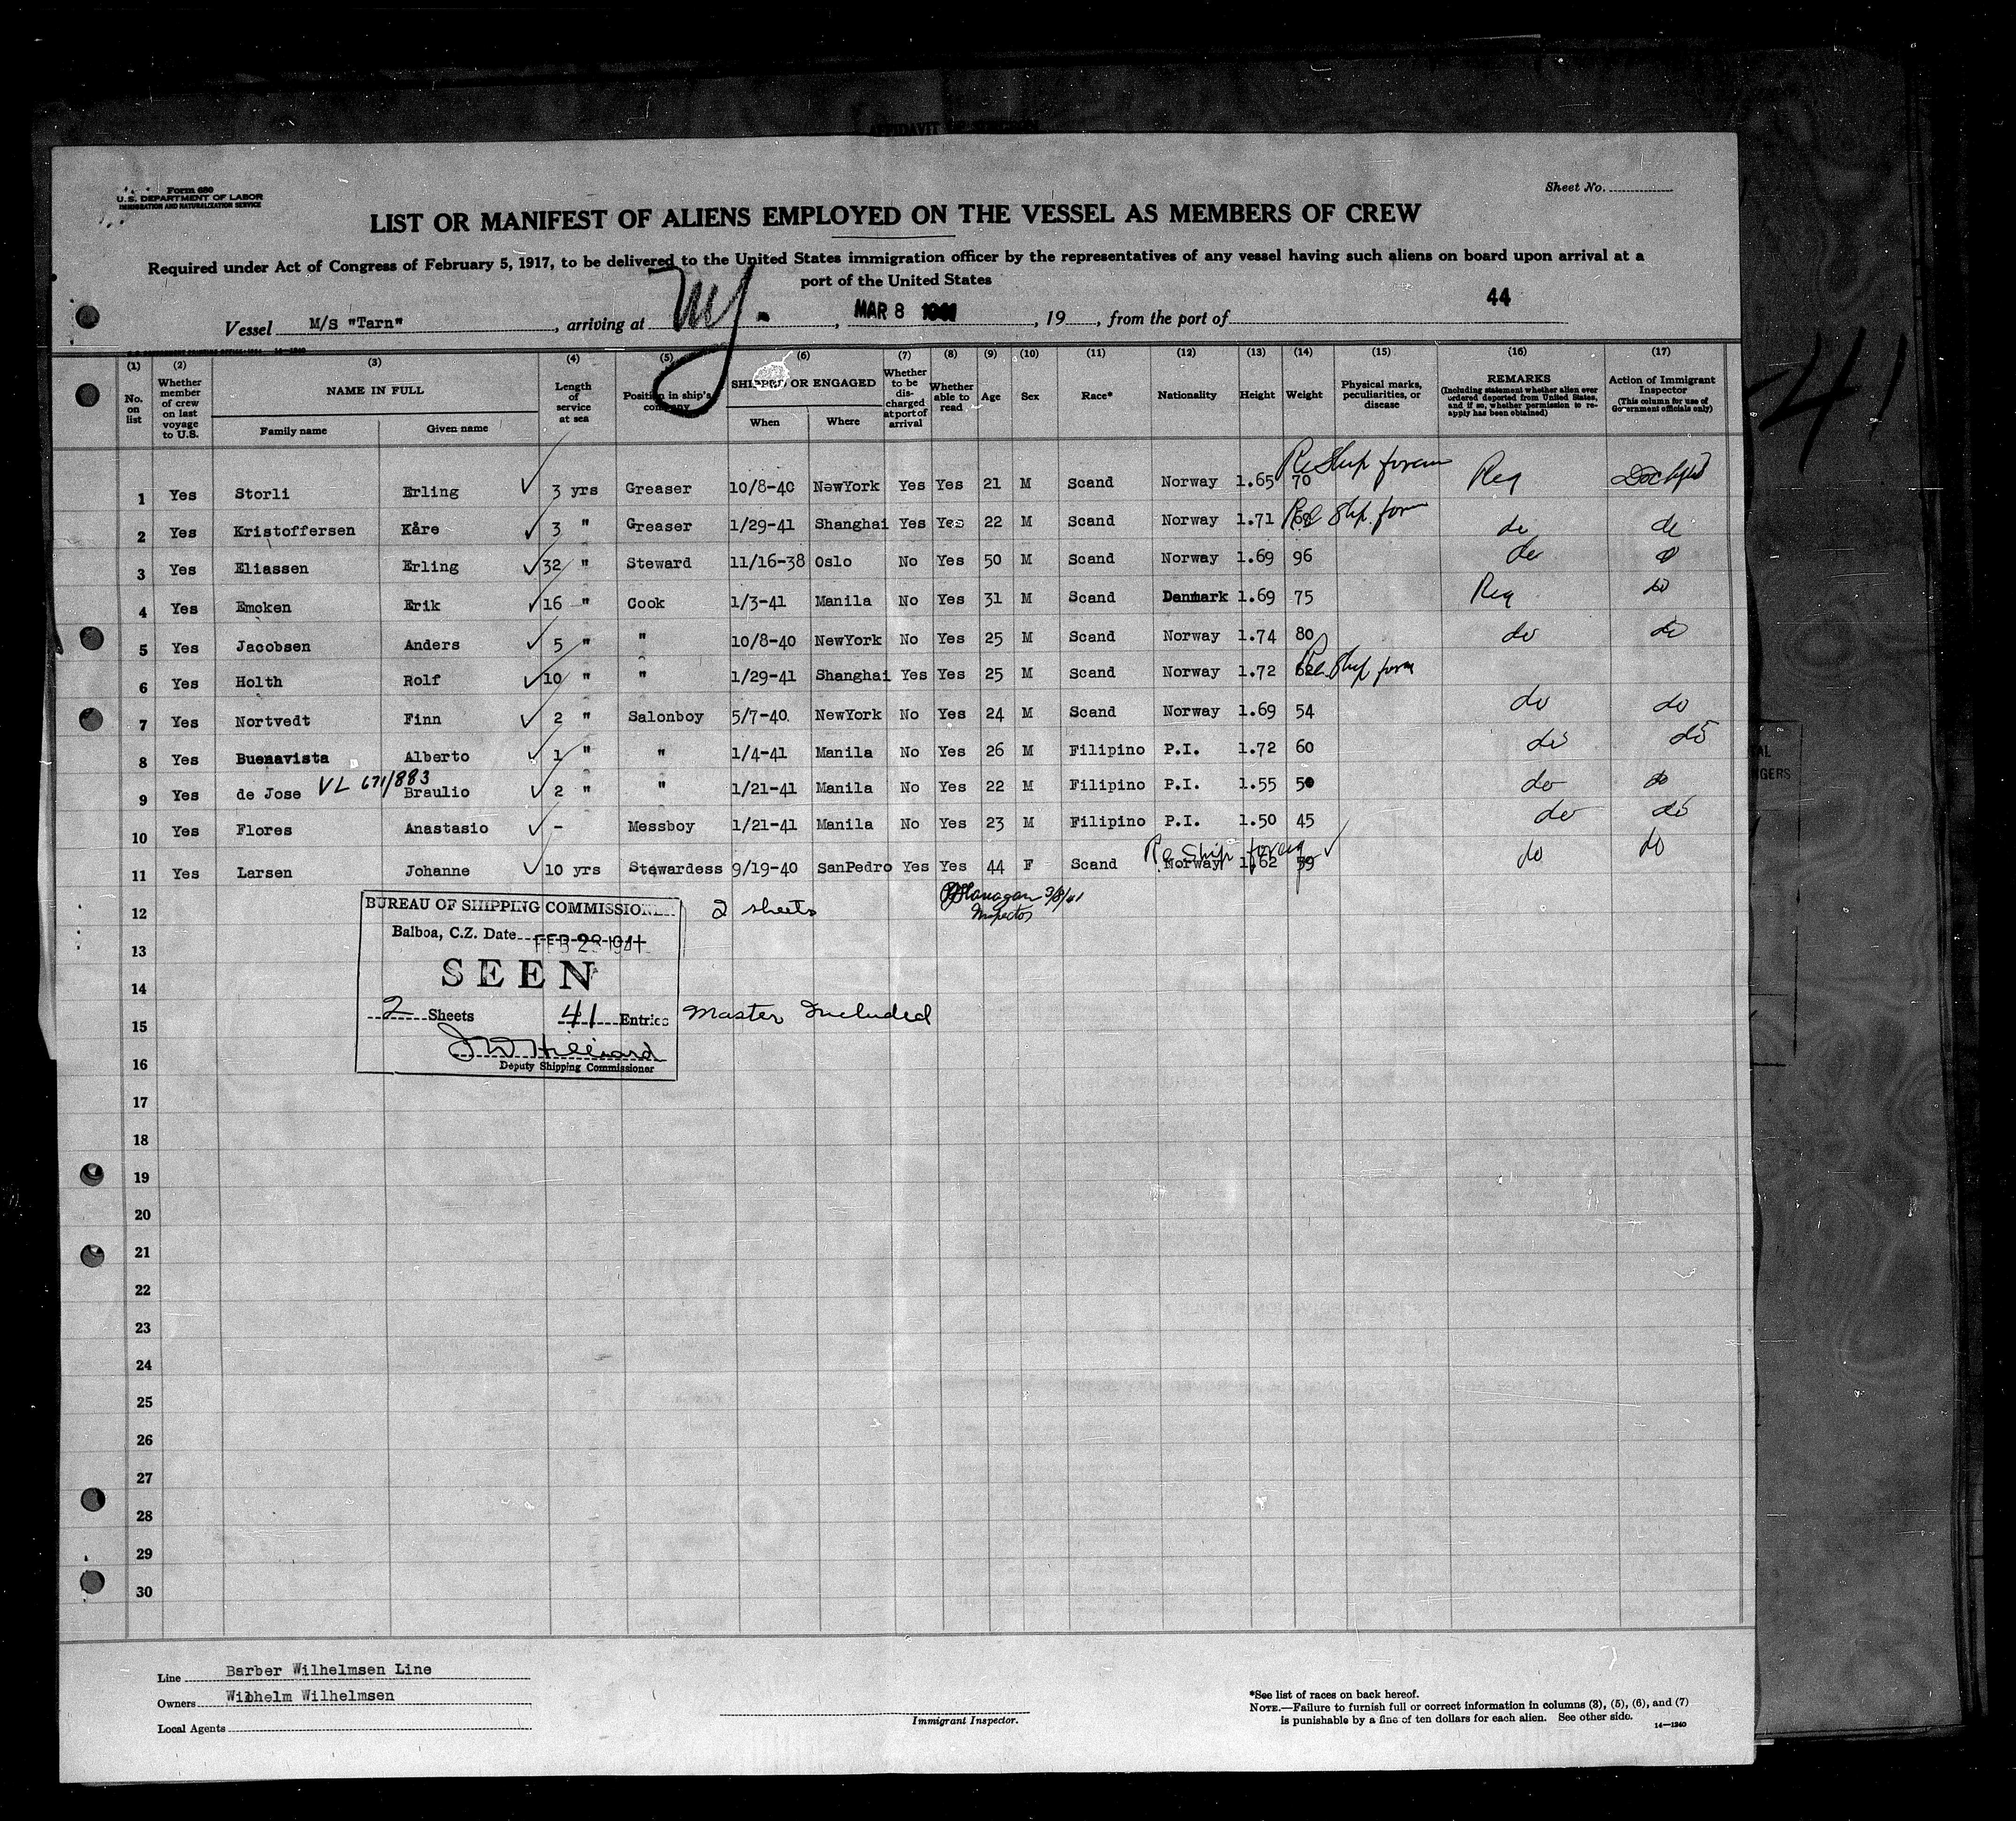 Form 680
U.S. DEPARTMENT OF LABOR
IMMIGRATION AND NATURALIZATION SERVICE
Sheet No.
LIST OR MANIFEST OF ALIENS EMPLOYED ON THE VESSEL AS MEMBERS OF CREW
Required under Act of Congress of February 5, 1917, to be delivered to the United States immigration officer by the representatives of any vessel having such aliens on board upon arrival at a
port of the United States
44
Vessel M/S "Tarn", arriving at NY., MAR 8 1941, 19, from the port of
(1) (2) (3) (4) (5) (6) (7) (8) (9) (10) (11) (12) (13) (14) (15) (16) (17)
No. on list
Whether member of crew on last voyage to U.S.
NAME IN FULL
Family name
Given name
Length of service at sea
Position in ship's company
SHIPPED OR ENGAGED
When
Where
Whether to be discharged at port of arrival
Whether able to read
Age
Sex
Race*
Nationality
Height
Weight
Physical marks, peculiarities, or disease
REMARKS
(Including statement whether alien ever ordered deported from United States, and if so, whether permission to reapply has been obtained)
Action of Immigrant Inspector
(This column for use of Government officials only)
1 Yes Storli Erling 3 yrs Greaser 10/8-40 NewYork Yes Yes 21 M Scand Norway 1.65 70 Re Ship foreign Req
2 Yes Kristoffersen Kåre 3 " Greaser 1/29-41 Shanghai Yes Yes 22 M Scand Norway 1.71 Re Ship form do do
3 Yes Eliassen Erling 32 " Steward 11/16-38 Oslo No Yes 50 M Scand Norway 1.69 96 do do
4 Yes Emcken Erik 16 " Cook 1/3-41 Manila No Yes 31 M Scand Denmark 1.69 75 Req do
5 Yes Jacobsen Anders 5 " " 10/8-40 NewYork No Yes 25 M Scand Norway 1.74 80 do do
6 Yes Holth Rolf 10 " " 1/29-41 Shanghai Yes Yes 25 M Scand Norway 1.72 62 Re Ship form
7 Yes Nortvedt Finn 2 " Salonboy 5/7-40 NewYork No Yes 24 M Scand Norway 1.69 54 do do
8 Yes Buenavista Alberto 1 " " 1/4-41 Manila No Yes 26 M Filipino P.I. 1.72 60 do do
9 Yes de Jose VL 671/883 Braulio 2 " " 1/21-41 Manila No Yes 22 M Filipino P.I. 1.55 50 do do
10 Yes Flores Anastasio - Messboy 1/21-41 Manila No Yes 23 M Filipino P.I. 1.50 45 do do
11 Yes Larsen Johanne 10 yrs Stewardess 9/19-40 SanPedro Yes Yes 44 F Scand Norway 1.62 59 Re Ship foreig do do
12
13
14
15
16
17
18
19
20
21
22
23
24
25
26
27
28
29
30
BUREAU OF SHIPPING COMMISSIONER
Balboa, C.Z. Date FEB 28 1941
SEEN
2 Sheets 41 Entries
JW Hilliard
Deputy Shipping Commissioner
2 sheets
Master Included
Flanagan 3/8/41
Inspector
Line Barber Wilhelmsen Line
Owners Wilhelm Wilhelmsen
Local Agents
Immigrant Inspector.
*See list of races on back hereof.
NOTE.—Failure to furnish full or correct information in columns (3), (5), (6), and (7)
is punishable by a fine of ten dollars for each alien. See other side.
14—1240